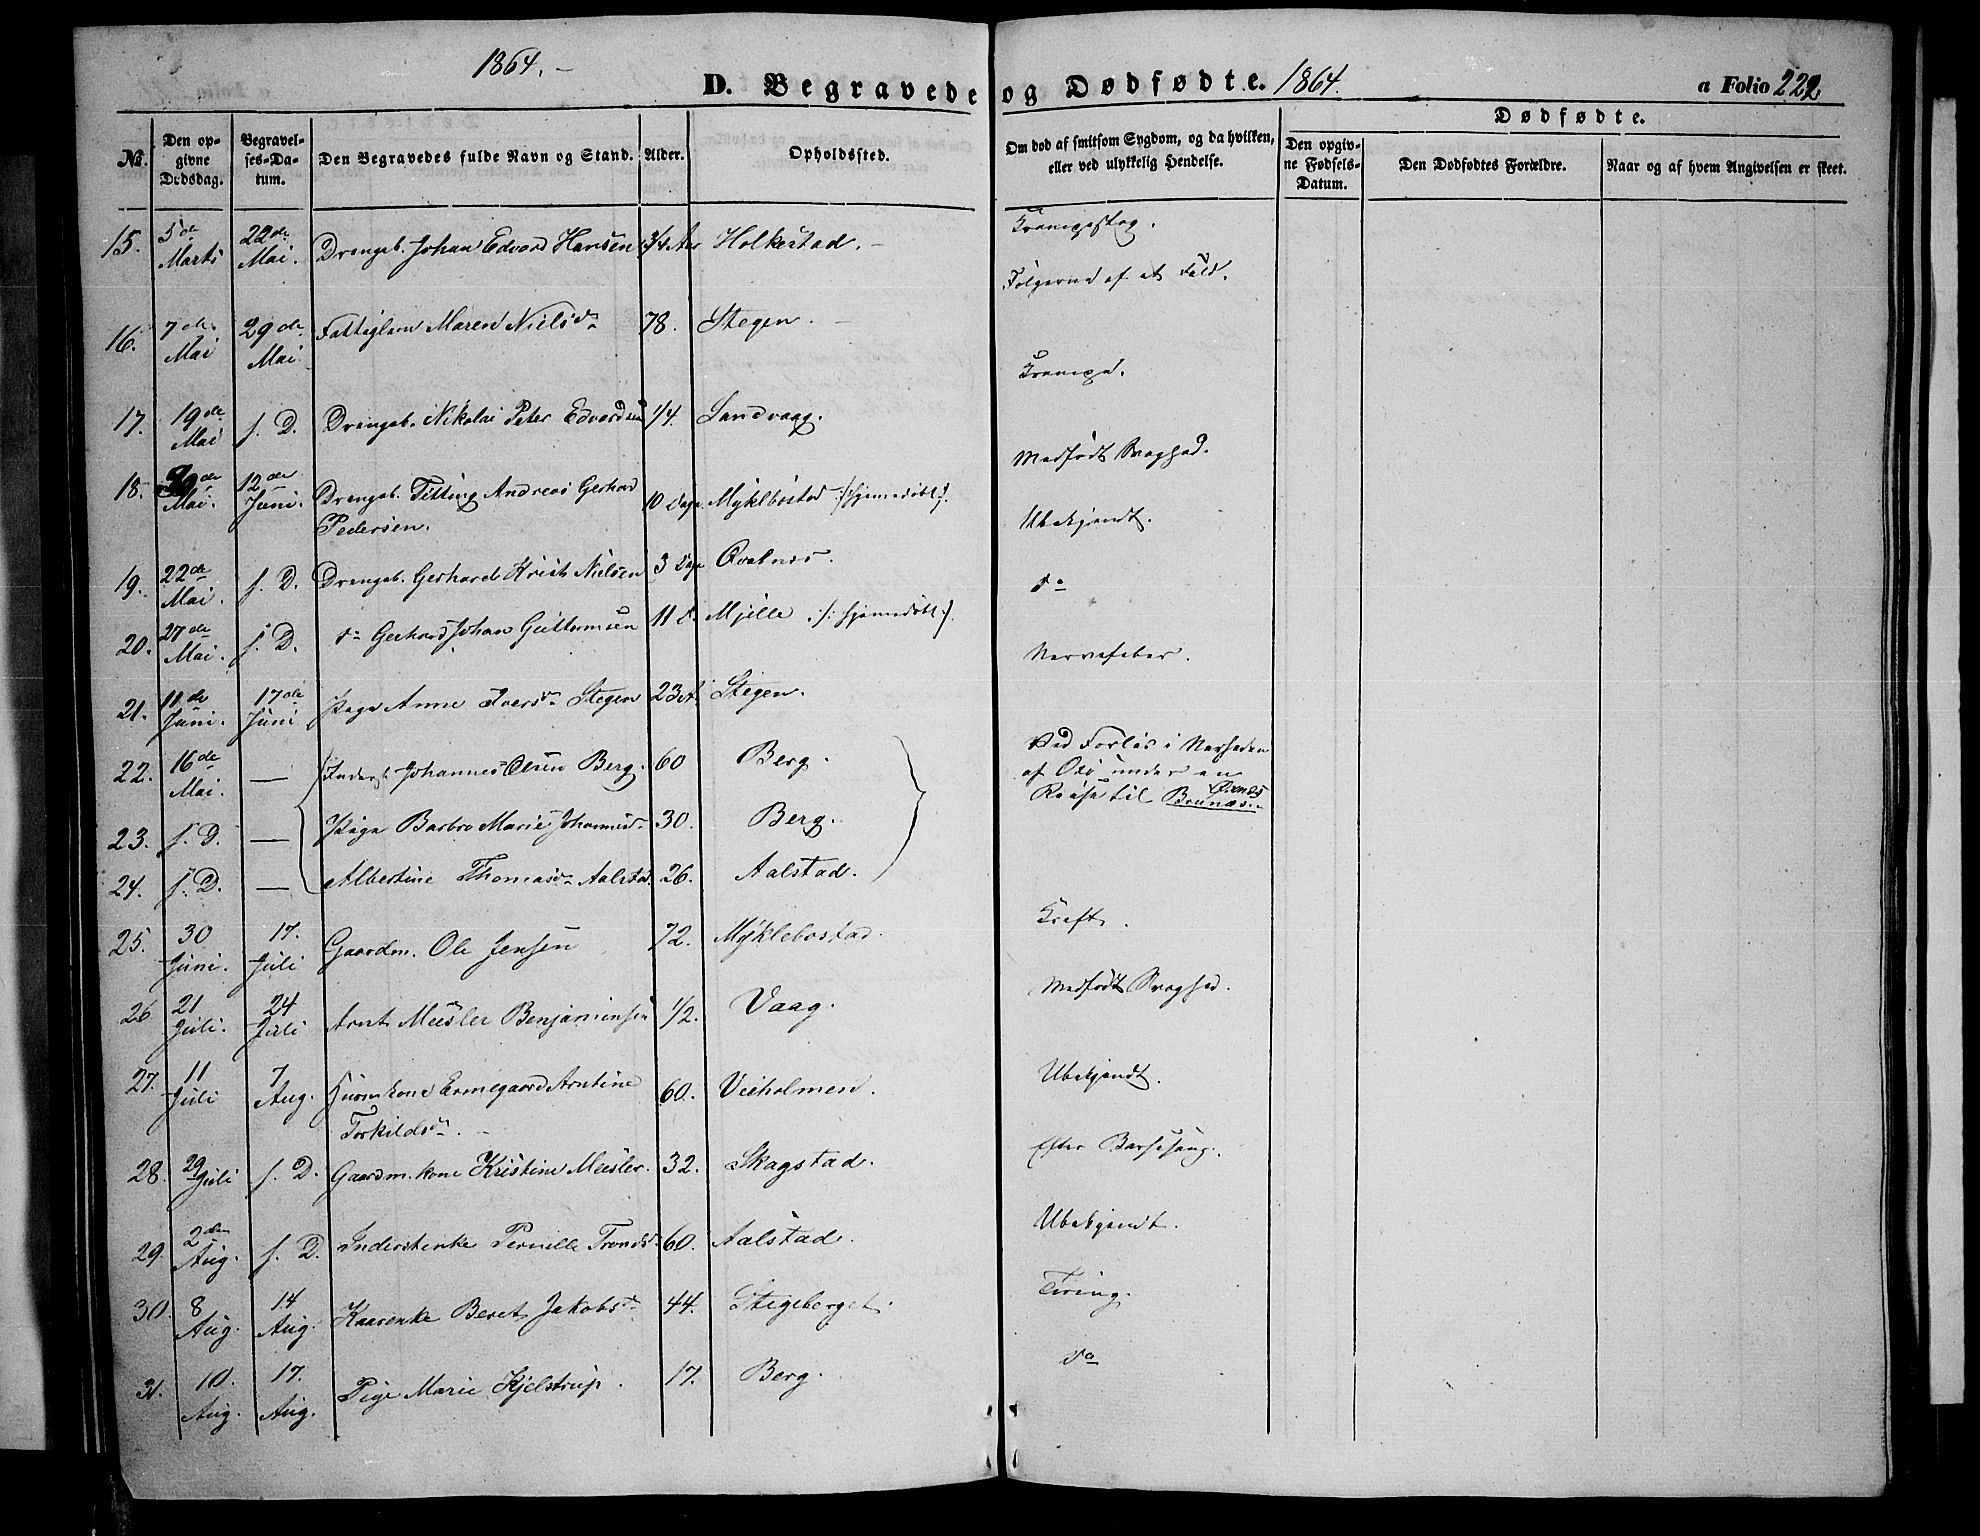 1864. –
D. Begravede og Dødfødte. 1864. a Folio 222
Dødfødte.
No. Den opgivne Dødsdag. Begravelses-Datum. Den Begravedes fulde Navn og Stand. Alder. Opholdssted. Om død af smitsom Sygdom, og da hvilken, eller ved ulykkelig Hendelse. Den opgivne Fødsels-Datum. Den Dødfødtes Forældre. Naar og af hvem Angivelsen er skeet.
15. 5de Marts 22de Mai. Drengeb. Johan Edvard Hansen 3/4 Aar Holkestad. –
16. 7de Mai 29de Mai. Fattiglem Maren Nielsdr 78. Stegen. – Følgerne af et Fald.
17. 19de Mai s. D. Drengeb. Nikolai Peter Edvardsen 1/4. Sandvaag.
18. Mai. 12de Juni. Drengeb. Andreas Gerhard 10 Dage Myklbostad /: hjemmedøbt :/. Medfødt Svaghed.
Pedersen.
19. 22de Mai. s. D. Drengeb. Gerhard Krist. Nielsen 3 Dage Qvalnes. Ubekjendt.
20. 27de Mai. s. D. do Gerhard Johan Guttormsen 11 d. Mjelle /: hjemmedøbt :/. do
21. 11de Juni. 17de Juni Pige Anne Iversdr Stegen 23 A. Stegen. Nervefeber.
22. 16de Mai. — Inderst Johannes Olsen Berg. 60 Berg. Ved Forlis i Nærheden
af under en
Reise til Øxnes Bonnæs.
23. s. D. — Pige Barbro Marie Johannesdr 30. Berg.
24. s. D. — Albertine Thomasdr Aalstad. 26. Aalstad.
25. 30 Juni. 17. Juli Gaardm. Ole Jensen 72. Myklebostad. Kræft.
26 21 Juli. 24 Juli Arnt Meisler Benjaminsen 1/2. Vaag. Medfødt Svaghed.
27. 11 Juli 7 Aug. Huusmkone Ermegaard Arntine 60. Veiholmen. Ubekjendt.
Torkildsdr. –
28. 29 Juli s. D. Gaardm. kone Kristine Meisler. 32. Skagstad. Efter Barselseng.
29. 2den Aug. s. D. Inderstenke Pernille Trondsdr 60. Aalstad. Ubekjendt.
30. 8 Aug. 14 Aug. Kaarenke Beret Jakobsdr 44. Stegeberget. Tæring.
31. 10. Aug. 17. Aug. Pige Marie Kjelstrup. 17. Berg. do